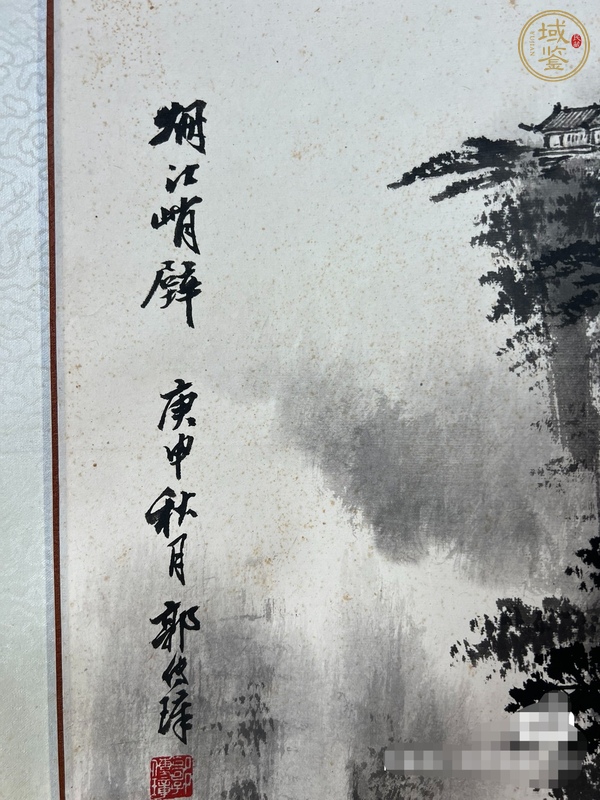 烟江峭壁 庚申秋月 郭传璋
郭傳璋
域鉴